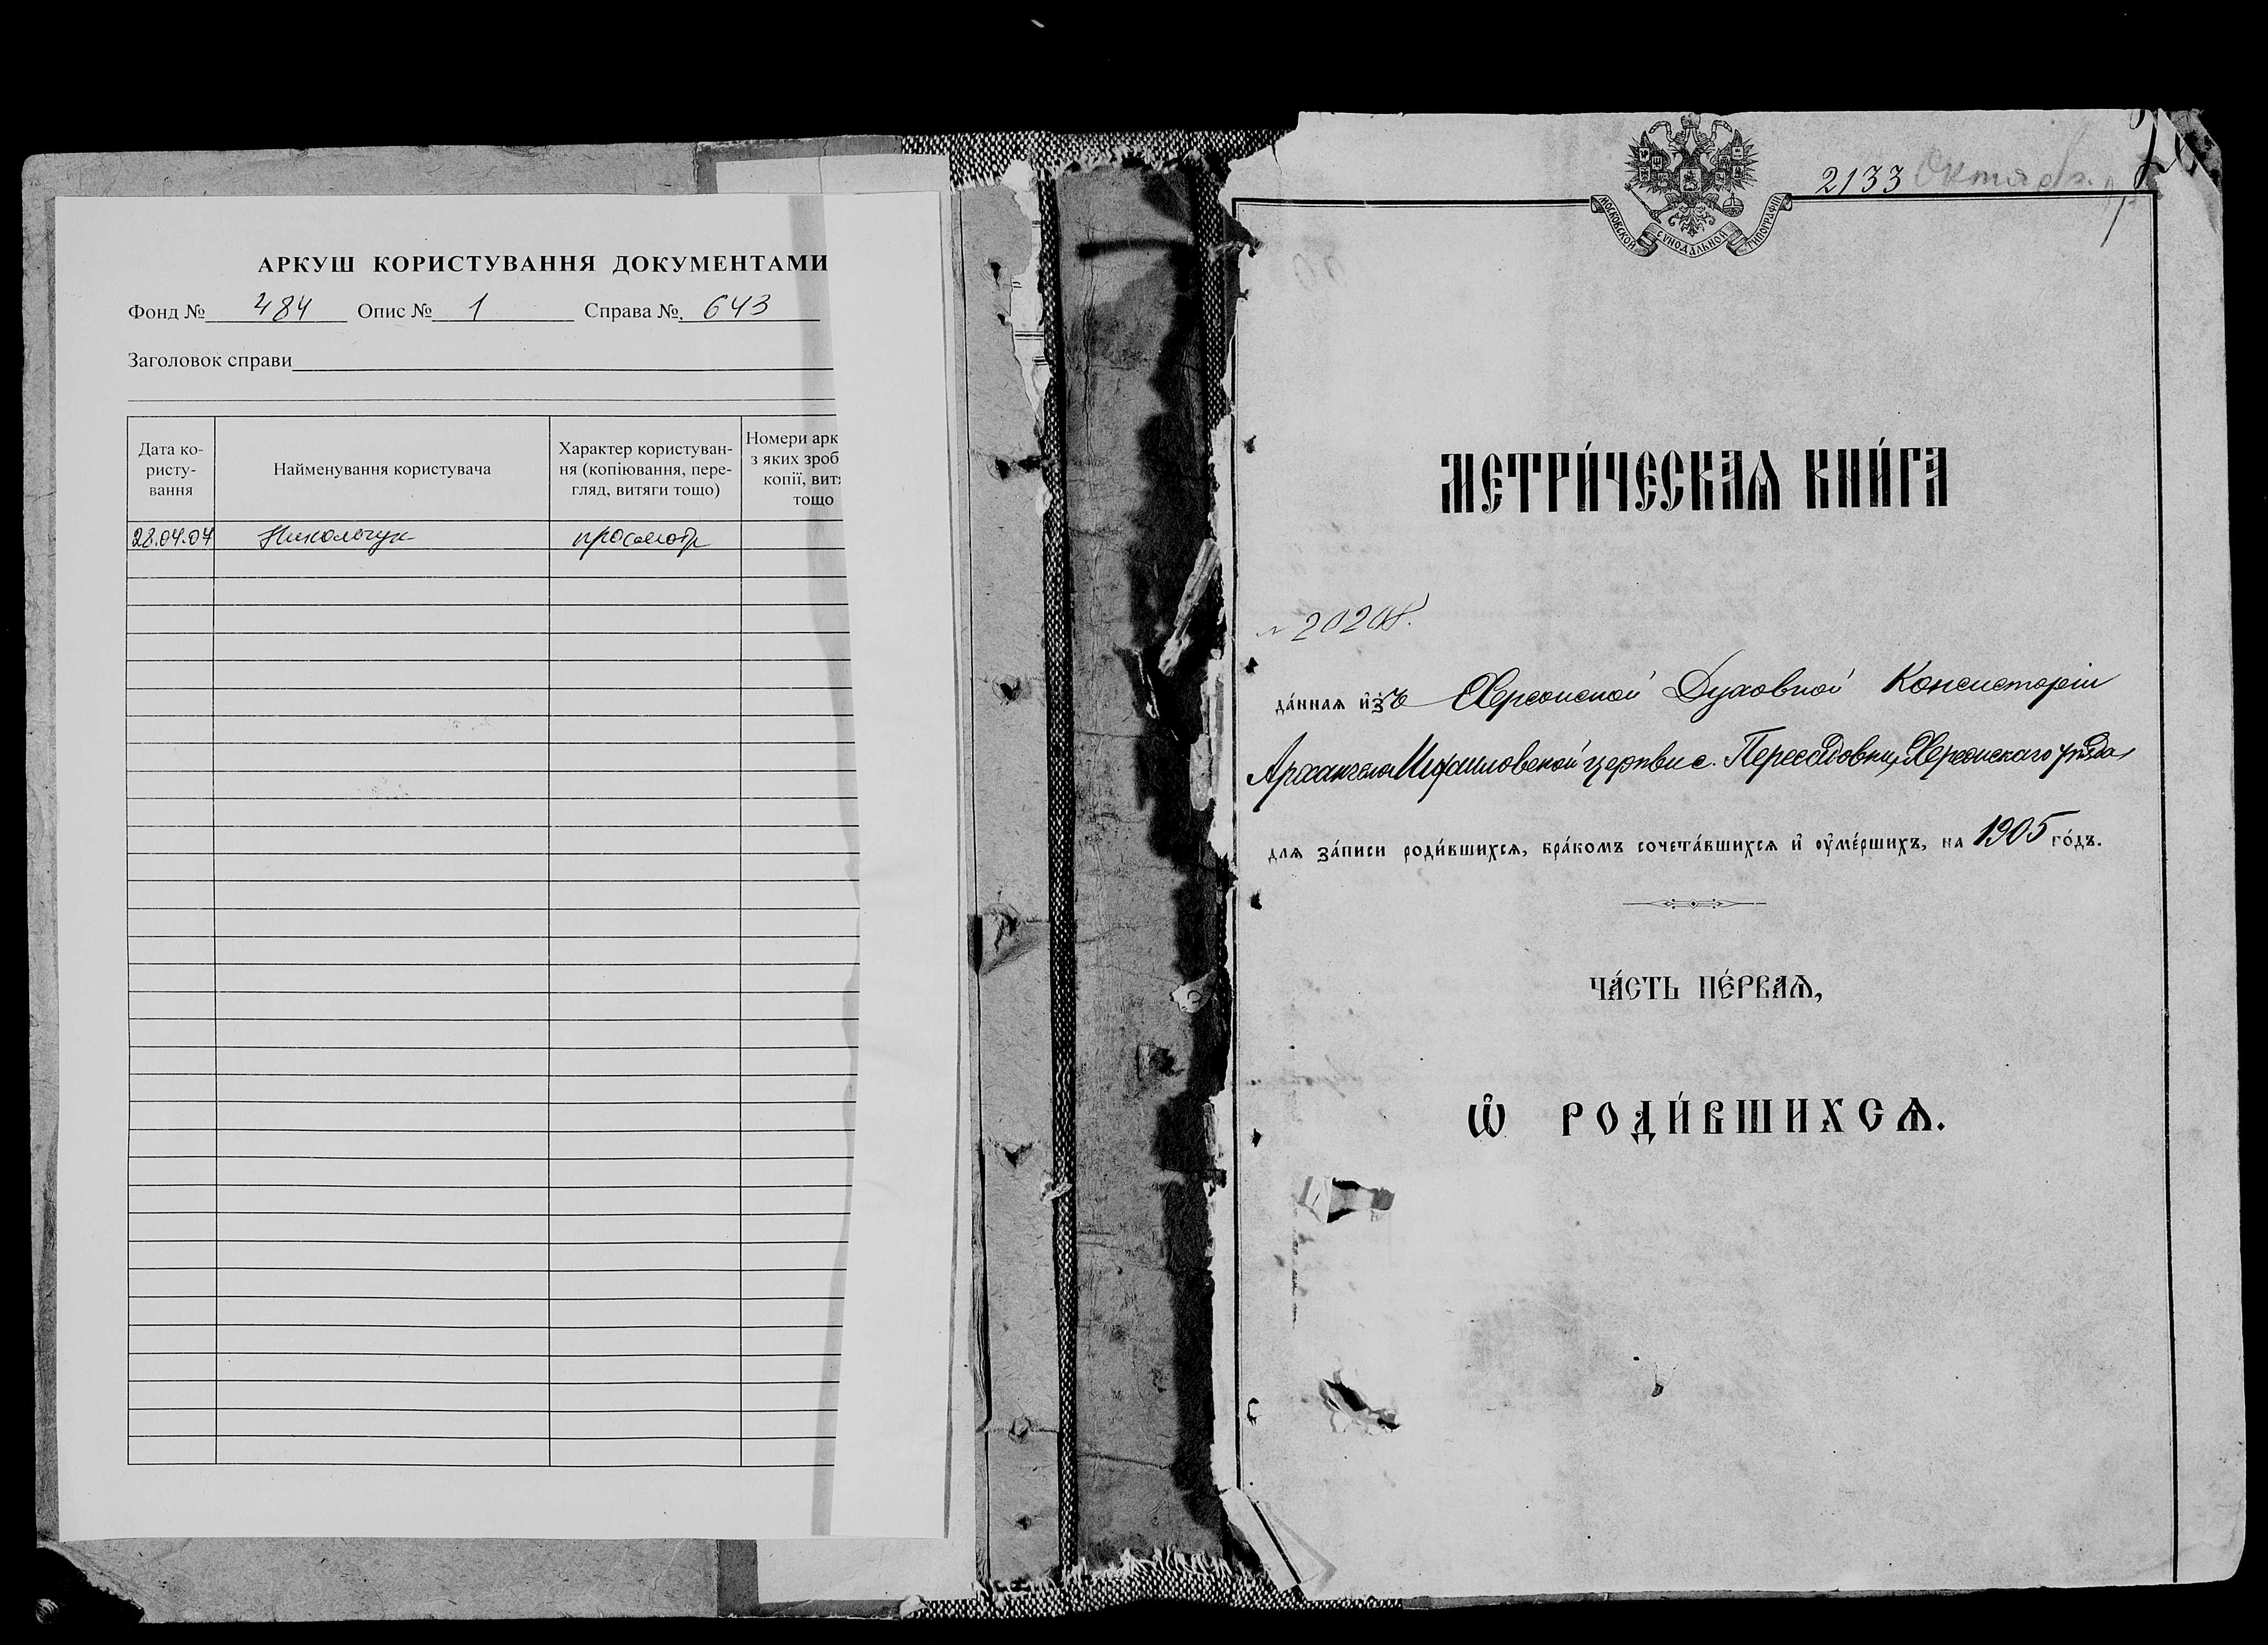 АРКУШ КОРИСТУВАННЯ ДОКУМЕНТАМИ
Фонд № 484 Опис № 1 Справа № 643
Заголовок справи
Дата ко-
ристу-
вання
Найменування користувача
Характер користуван-
ня (копіювання, пере-
гляд, витяги тощо)
Номери арк
з яких зроб
копії, витя
тощо
28.04.07 Никольчук просмотр
2133 Октябр.
МОСКОВСКОЙ СѴНОДАЛЬНОЙ ТИПОГРАФІИ
МЕТРИ́ЧЕСКАѦ КНИ́ГА
20208.
да́ннаѧ и҆зъ Херсонской Духовной Консисторіи
Архангело Михаиловской церкви с. Пересадовки, Херсонскаго уѣзда,
длѧ за́писи роди́вшихсѧ, бра́комъ сочета́вшихсѧ и҆ оу҆ме́ршихъ, на 1905 го́дъ.
ЧА́СТЬ ПЕ́РВАѦ,
Ѽ РОДИ́ВШИХСѦ.